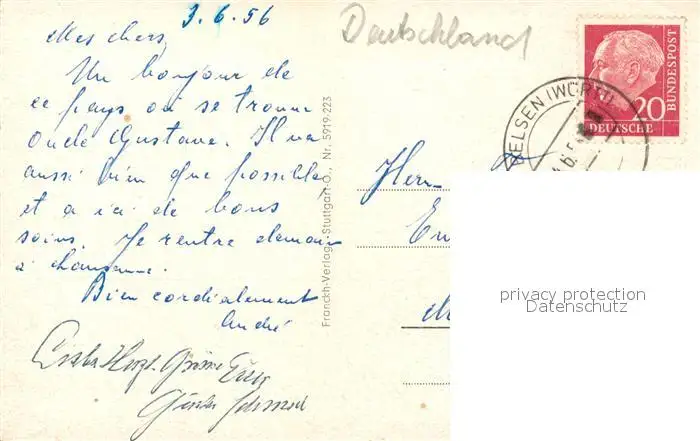 3.6.56
Deutschland
Mes chers,
Un bonjour de
ce pays où se trouve
oncle Gustave. Il va
aussi bien que possible,
et a ici de bons
soins. Je rentre demain
à
Bien cordialement
André
Herzl. Grüsse
Franckh-Verlag, Stuttgart-O., Nr. 5919-223
20
DEUTSCHE
BUNDESPOST
ELSEN (WÜRTT)
Herrn
privacy protection
Datenschutz